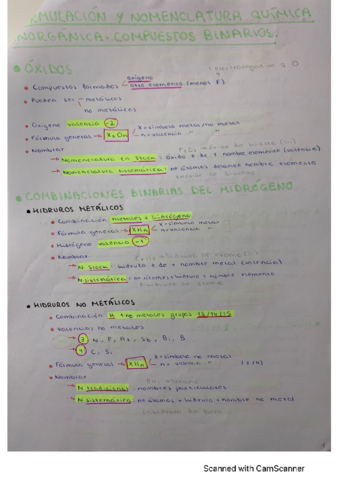 FORMULACIÓN Y NOMENCLATURA QUÍMICA
INORGÁNICA: COMPUESTOS BINARIOS.
ÓXIDOS
Compuestos formados oxígeno
otro elemento (menos F)
Pueden ser metálicos
no metálicos
Oxígeno valencia -2
Fórmula general X2On X = símbolo metal/no metal
n = valencia
Nombrar
Nomenclatura en Stock: óxido + de + nombre elemento (valencia)
Nomenclatura sistemática: nº átomos óxido + nombre elemento
COMBINACIONES BINARIAS DEL HIDRÓGENO
HIDRUROS METÁLICOS
Combinación metales + hidrógeno
Fórmula general XHn X = símbolo metal
n = valencia
Hidrógeno valencia -1
Nombrar
N Stock: hidruro + de + nombre metal (valencia)
N sistemática: nº átomos + hidruro + nombre elemento
HIDRUROS NO METÁLICOS
Combinación H + no metales grupos 13/14/15
Valencias no metales
3 N, P, As, Sb, Bi, B
4 C, Si
Fórmula general XHn X = símbolo no metal
n = valencia (3/4)
Nombrar
N tradicional: nombres particulares
N sistemática: nº átomos + hidruro + nombre no metal
Scanned with CamScanner